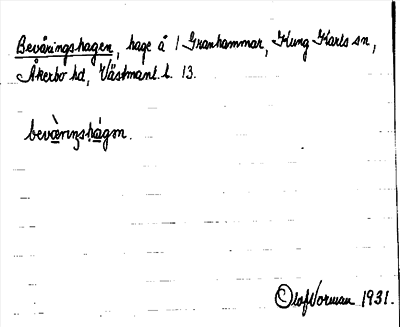 Beväringshagen, hage å 1 Granhammar, Kung Karls sn,
Åkerbo hd, Västmanl. l. 13.
bevä̀riŋshágən.
Olof Norman 1931.